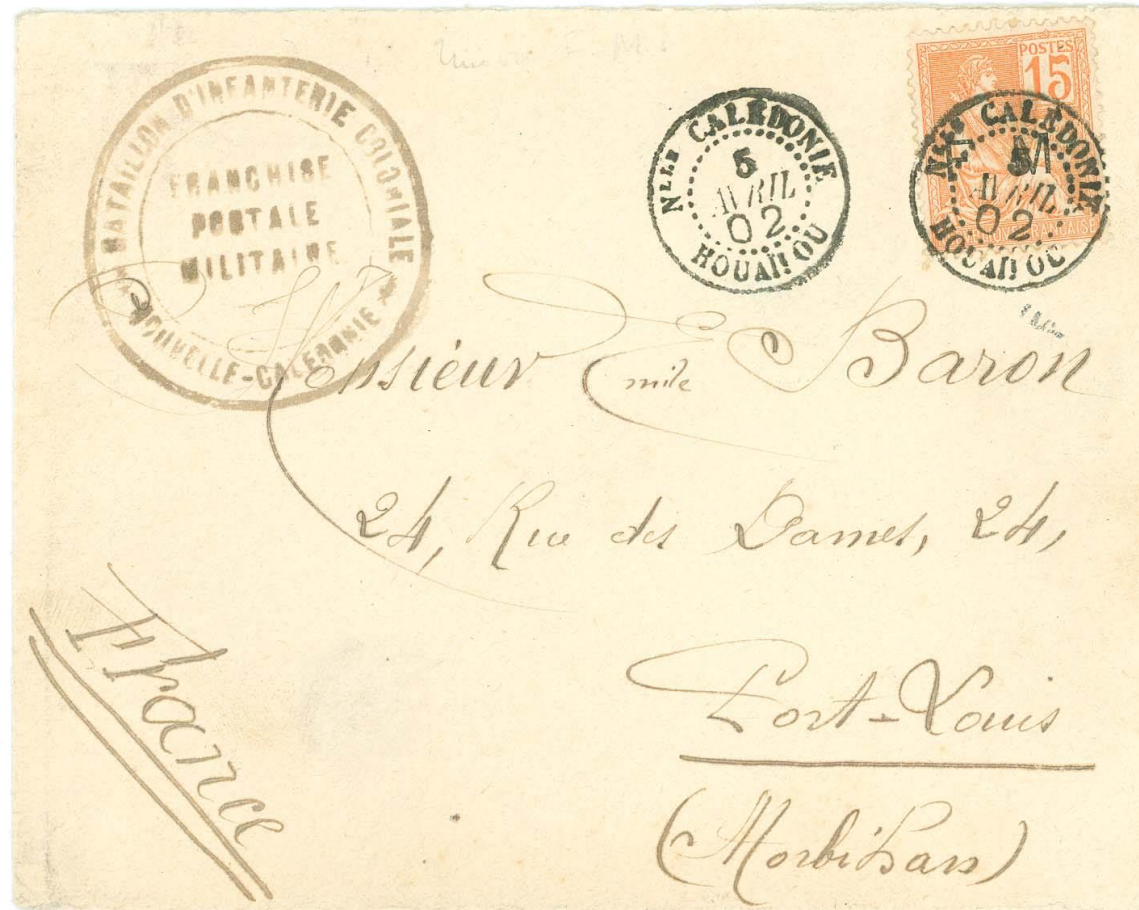 BATAILLON D'INFANTERIE COLONIALE
FRANCHISE
POSTALE
MILITAIRE
* NOUVELLE-CALEDONIE *
Nlle CALEDONIE
5
AVRIL
02
HOUAÏLOU
POSTES
15
F M
Nlle CALEDONIE
5
AVRIL
02
HOUAÏLOU
FRANÇAISE
Monsieur Emile Baron
24, Rue des Dames, 24,
Port-Louis
(Morbihan)
France